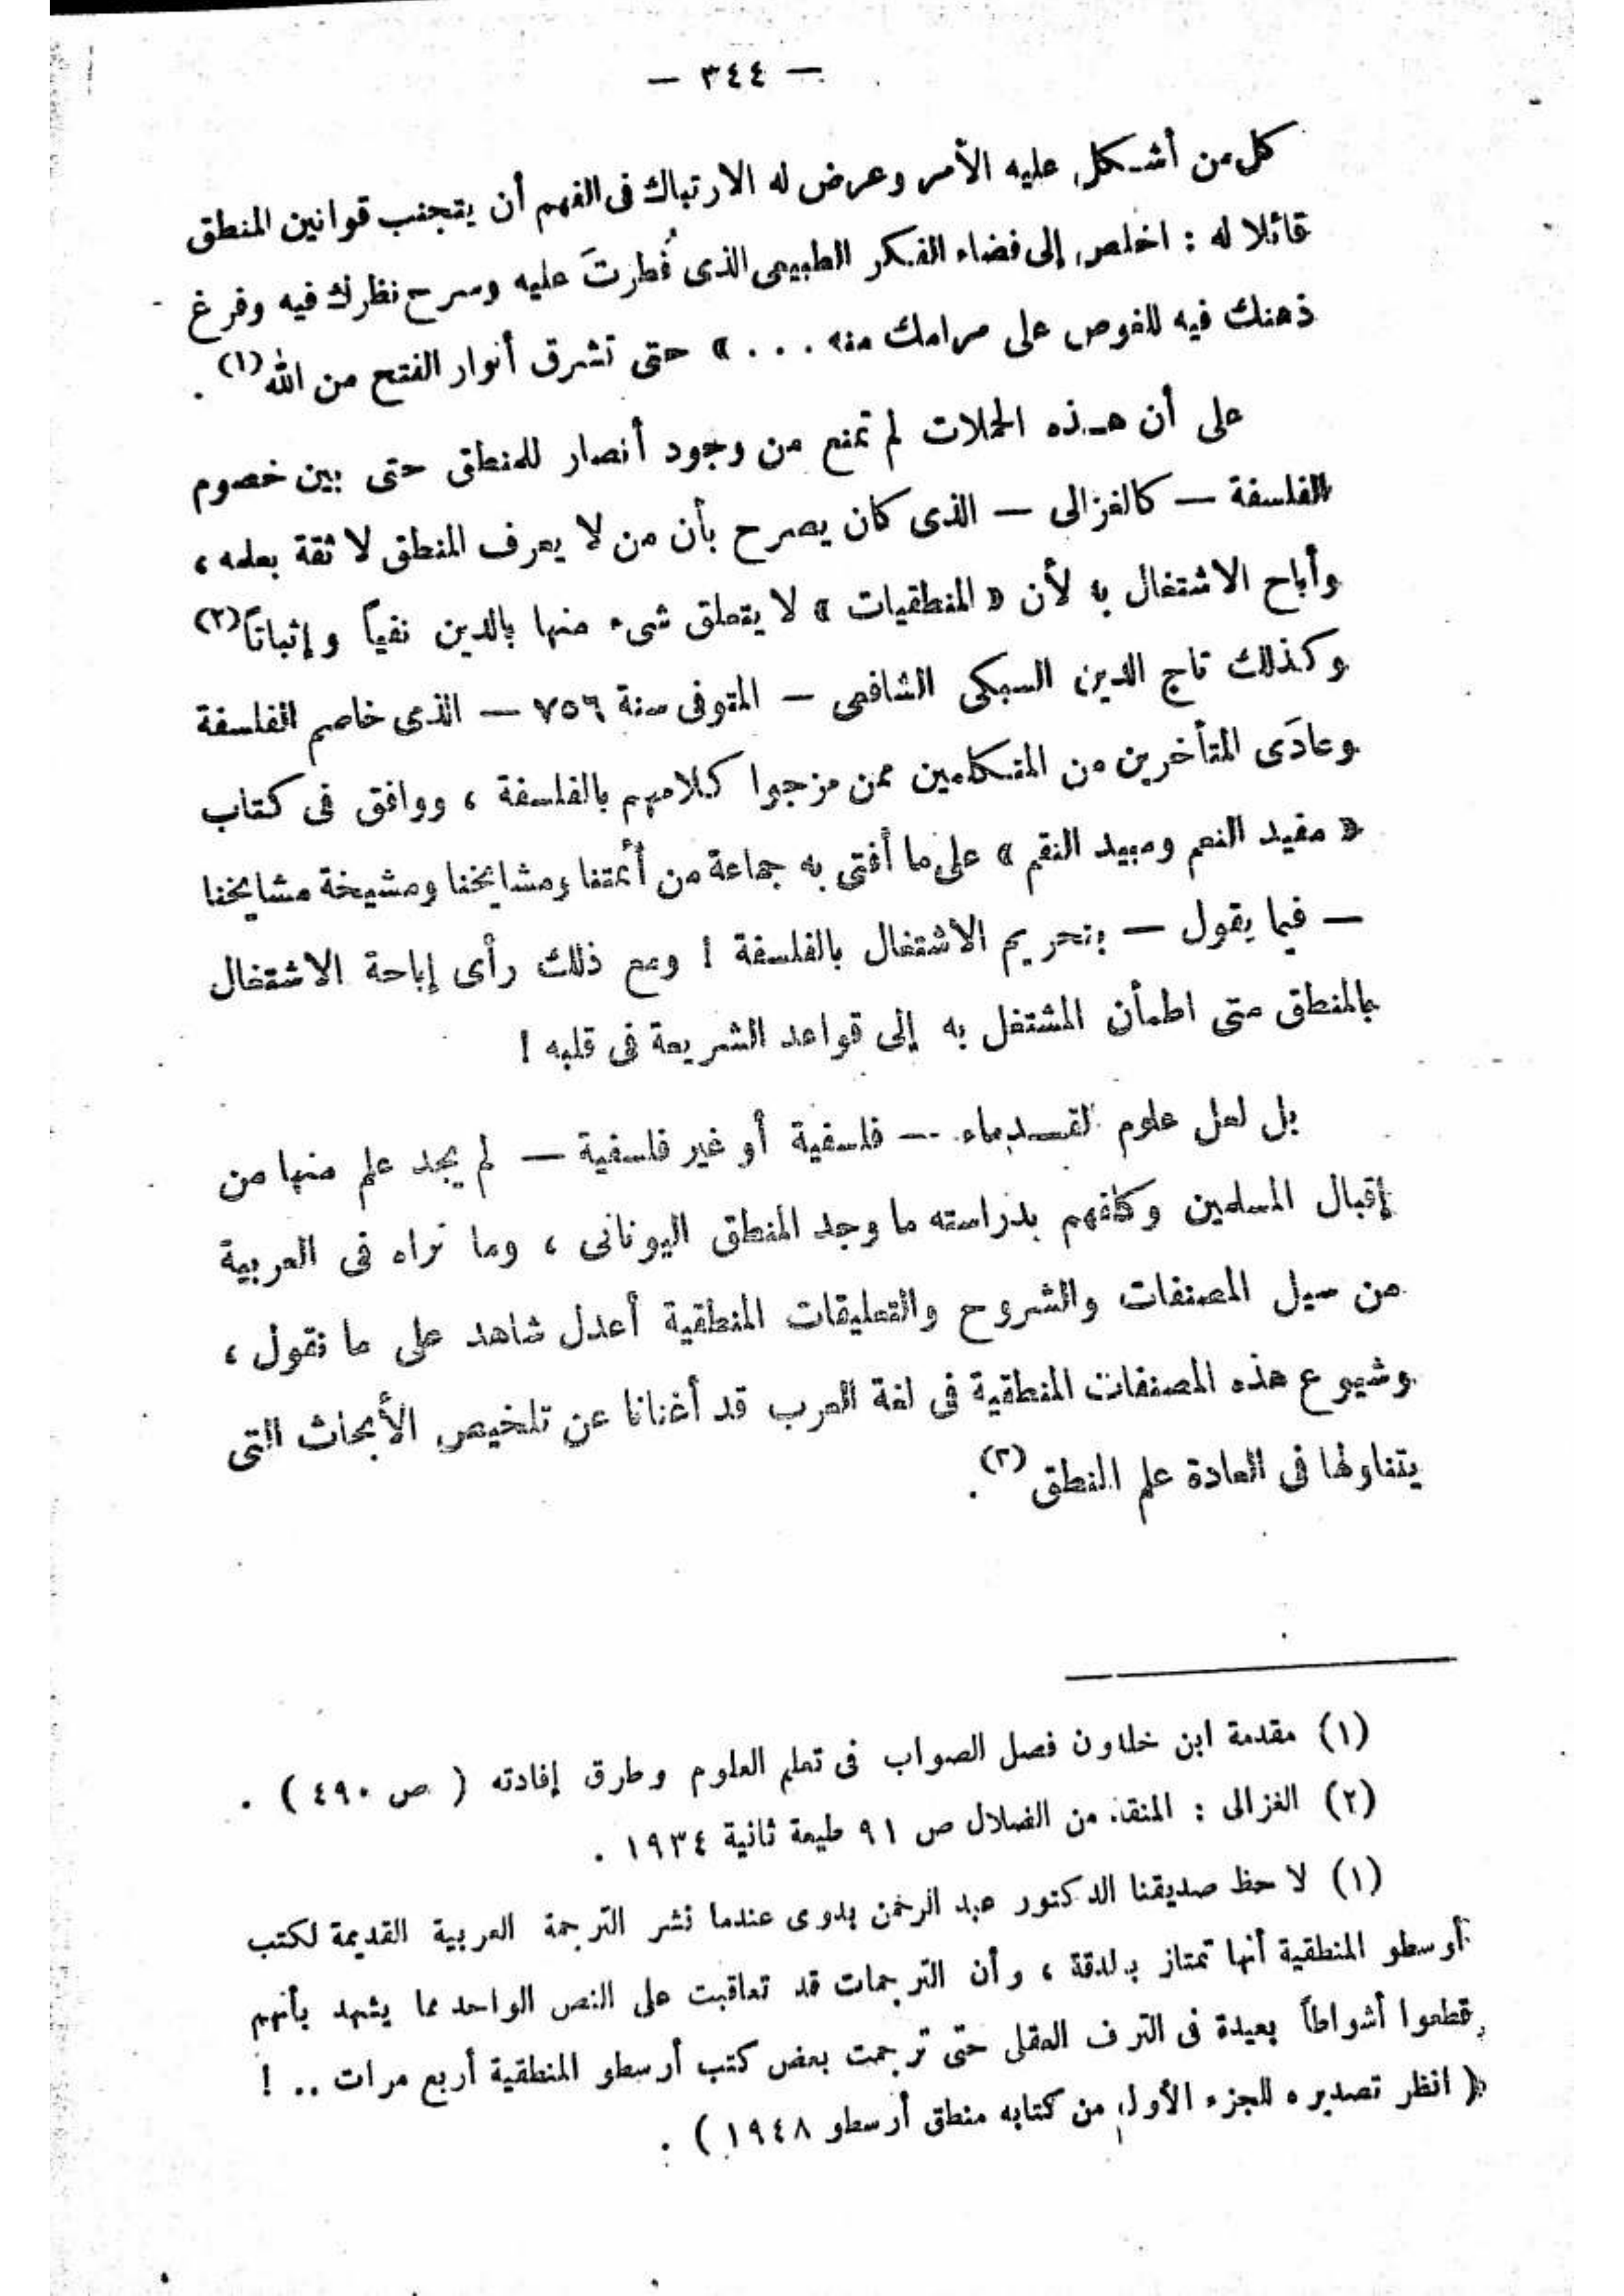 — ٣٤٤ —
كل من أشكل عليه الأمر وعرض له الارتباك فى الفهم أن يتجنب قوانين المنطق
قائلا له : اخلص إلى فضاء الفكر الطبيعى الذى فُطرتَ عليه وسرح نظرك فيه وفرغ
ذهنك فيه للغوص على مرامك منه . . . » حتى تشرق أنوار الفتح من الله (١) .
على أن هذه الحملات لم تمنع من وجود أنصار للمنطق حتى بين خصوم
الفلسفة — كالغزالى — الذى كان يصرح بأن من لا يعرف المنطق لا ثقة بعلمه ،
وأباح الاشتغال به لأن « المنطقيات » لا يتعلق شىء منها بالدين نفياً وإثباتاً (٢)
وكذلك تاج الدين السبكى الشافعى — المتوفى سنة ٧٥٦ — الذى خاصم الفلسفة
وعادَى المتأخرين من المتكلمين ممن مزجوا كلامهم بالفلسفة ، ووافق فى كتاب
« مفيد النعم ومبيد النقم » على ما أفتى به جماعة من أئمتنا ومشايخنا ومشيخة مشايخنا
— فيما يقول — بتحريم الاشتغال بالفلسفة ! ومع ذلك رأى إباحة الاشتغال
بالمنطق متى اطمأن المشتغل به إلى قواعد الشريعة فى قلبه !
بل لعل علوم القدماء — فلسفية أو غير فلسفية — لم يجد علم منها من
إقبال المسلمين وكلفهم بدراسته ما وجد المنطق اليونانى ، وما نراه فى العربية
من سيل المصنفات والشروح والتعليقات المنطقية أعدل شاهد على ما نقول ،
وشيوع هذه المصنفات المنطقية فى لغة العرب قد أغنانا عن تلخيص الأبحاث التى
يتناولها فى العادة علم المنطق (٣) .
(١) مقدمة ابن خلدون فصل الصواب فى تعلم العلوم وطرق إفادته ( ص ٤٩٠ ) .
(٢) الغزالى : المنقذ من الضلال ص ٩١ طبعة ثانية ١٩٣٤ .
(١) لاحظ صديقنا الدكتور عبد الرحمن بدوى عندما نشر الترجمة العربية القديمة لكتب
أرسطو المنطقية أنها تمتاز بالدقة ، وأن الترجمات قد تعاقبت على النص الواحد مما يشهد بأنهم
قطعوا أشواطاً بعيدة فى الترف العقلى حتى ترجمت بعض كتب أرسطو المنطقية أربع مرات .. !
( انظر تصديره للجزء الأول من كتابه منطق أرسطو ١٩٤٨ ) .